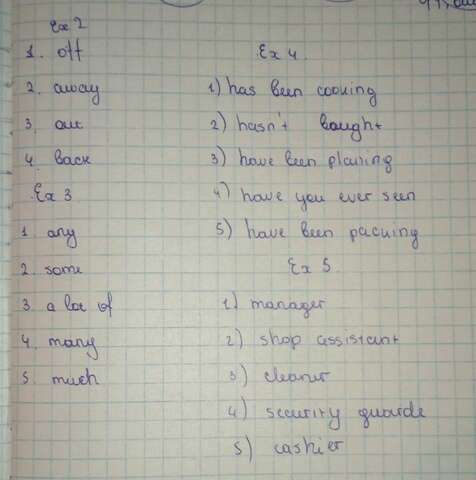 Ex 2
1. off
2. away
3. out
4. back
Ex 3
1. any
2. some
3 a lot of
4. many
5. much
Ex 4.
1) has been cooking
2) hasn't bought
3) have been planing
4) have you ever seen
5) have been packing
Ex 5.
1) manager
2) shop assistant
3) cleaner
4) security guarde
5) cashier